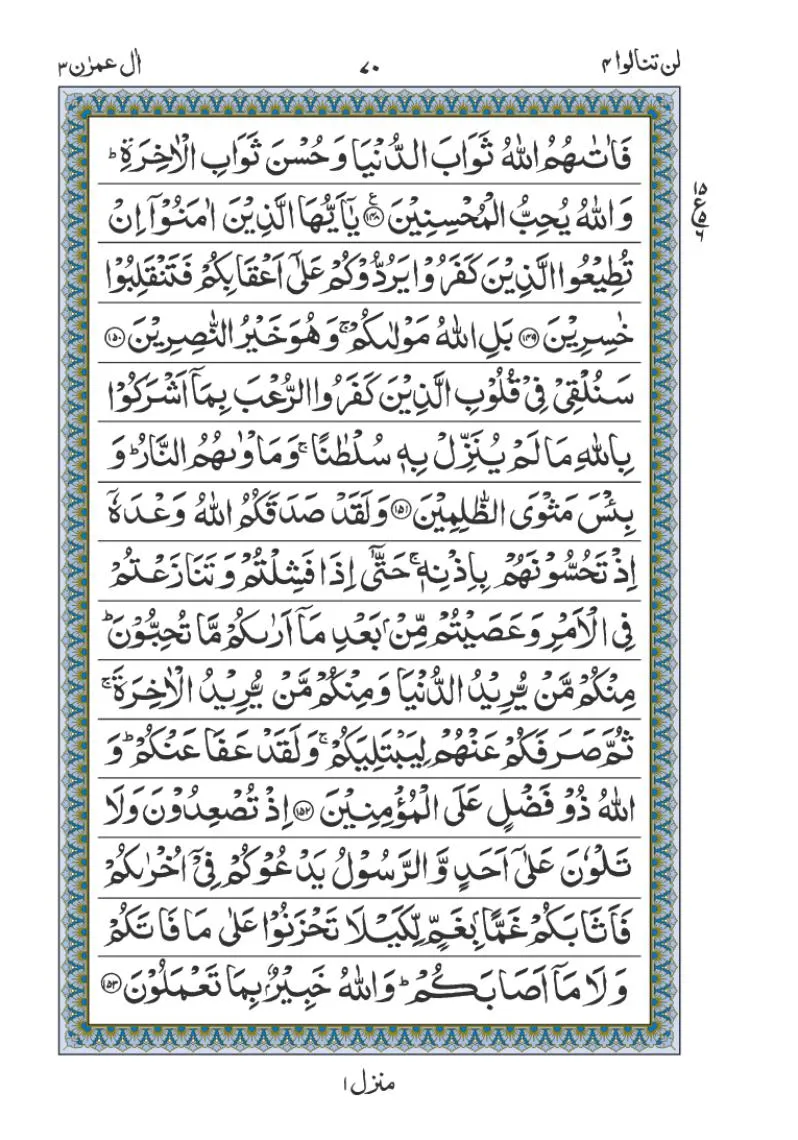 لن تنالوا ۴ ۷۰ اٰل عمرٰن ۳
فَاٰتٰىهُمُ اللّٰهُ ثَوَابَ الدُّنْيَا وَحُسْنَ ثَوَابِ الْاٰخِرَةِ ؕ
وَاللّٰهُ يُحِبُّ الْمُحْسِنِيْنَ ﴿۱۴۸﴾ ع يٰۤاَيُّهَا الَّذِيْنَ اٰمَنُوْۤا اِنْ
۱۵ ع ۵ ۶
تُطِيْعُوا الَّذِيْنَ كَفَرُوْا يَرُدُّوْكُمْ عَلٰۤى اَعْقَابِكُمْ فَتَنْقَلِبُوْا
خٰسِرِيْنَ ﴿۱۴۹﴾ بَلِ اللّٰهُ مَوْلٰىكُمْ ۚ وَهُوَ خَيْرُ النّٰصِرِيْنَ ﴿۱۵۰﴾
سَنُلْقِىْ فِىْ قُلُوْبِ الَّذِيْنَ كَفَرُوا الرُّعْبَ بِمَاۤ اَشْرَكُوْا
بِاللّٰهِ مَا لَمْ يُنَزِّلْ بِهٖ سُلْطٰنًا ۚ وَمَاْوٰىهُمُ النَّارُ ؕ وَ
بِئْسَ مَثْوَى الظّٰلِمِيْنَ ﴿۱۵۱﴾ وَلَقَدْ صَدَقَكُمُ اللّٰهُ وَعْدَهٗۤ
اِذْ تَحُسُّوْنَهُمْ بِاِذْنِهٖ ۚ حَتّٰۤى اِذَا فَشِلْتُمْ وَتَنَازَعْتُمْ
فِى الْاَمْرِ وَعَصَيْتُمْ مِّنْۢ بَعْدِ مَاۤ اَرٰىكُمْ مَّا تُحِبُّوْنَ ؕ
مِنْكُمْ مَّنْ يُّرِيْدُ الدُّنْيَا وَمِنْكُمْ مَّنْ يُّرِيْدُ الْاٰخِرَةَ ۚ
ثُمَّ صَرَفَكُمْ عَنْهُمْ لِيَبْتَلِيَكُمْ ۚ وَلَقَدْ عَفَا عَنْكُمْ ؕ وَ
اللّٰهُ ذُوْ فَضْلٍ عَلَى الْمُؤْمِنِيْنَ ﴿۱۵۲﴾ اِذْ تُصْعِدُوْنَ وَلَا
تَلْوٗنَ عَلٰۤى اَحَدٍ وَّالرَّسُوْلُ يَدْعُوْكُمْ فِىْۤ اُخْرٰىكُمْ
فَاَثَابَكُمْ غَمًّاۢ بِغَمٍّ لِّكَيْلَا تَحْزَنُوْا عَلٰى مَا فَاتَكُمْ
وَلَا مَاۤ اَصَابَكُمْ ؕ وَاللّٰهُ خَبِيْرٌۢ بِمَا تَعْمَلُوْنَ ﴿۱۵۳﴾
منزل ۱